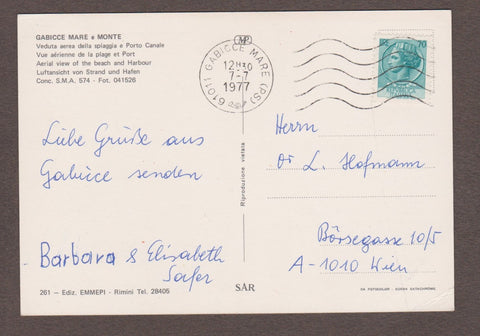 GABICCE MARE e MONTE
Veduta aerea della spiaggia e Porto Canale
Vue aérienne de la plage et Port
Aerial view of the beach and Harbour
Luftansicht von Strand und Hafen
Conc. S.M.A. 574 - Fot. 041526
61011 GABICCE MARE (PS)
7-7
1977
70
Liebe Grüße aus
Gabicce senden
Barbara & Elisabeth
Herrn
Dr L. Hofmann
Börsegasse 10/5
A-1010 Wien
Riproduzione vietata
261 - Ediz. EMMEPI - Rimini Tel. 28405
SAR